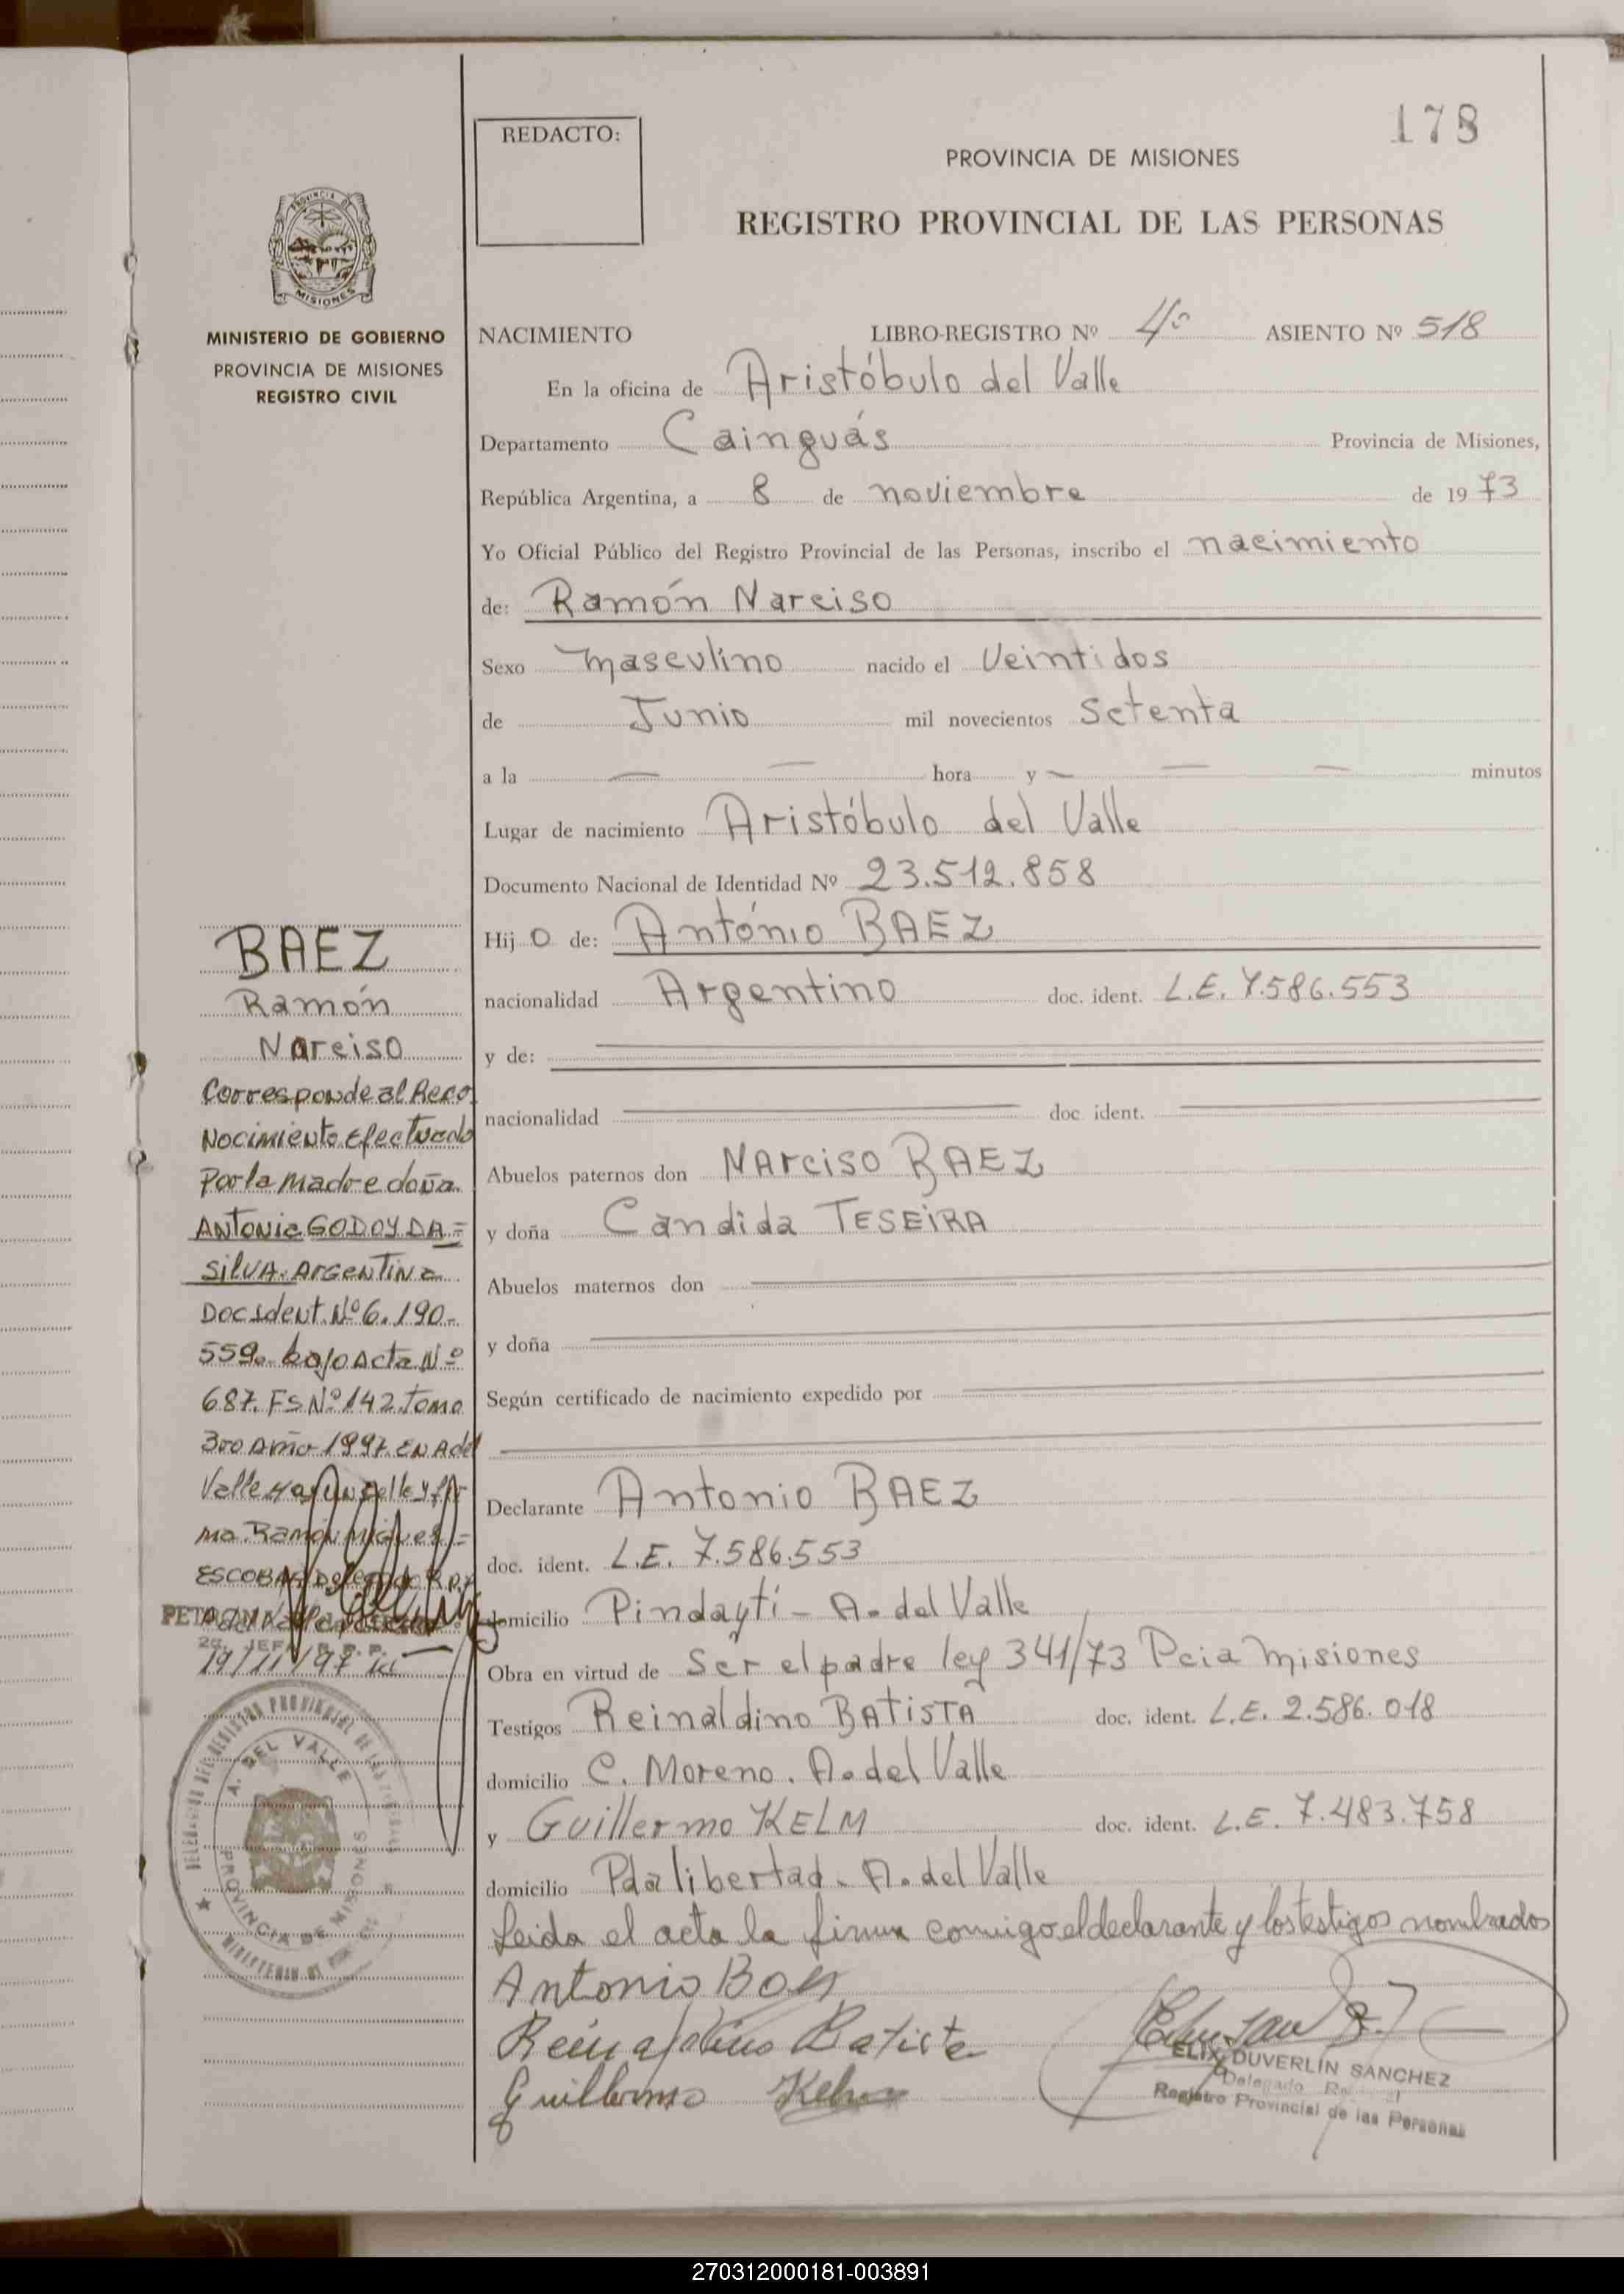 178
REDACTO:
PROVINCIA DE MISIONES
REGISTRO PROVINCIAL DE LAS PERSONAS
MISIONES
MINISTERIO DE GOBIERNO
PROVINCIA DE MISIONES
REGISTRO CIVIL
NACIMIENTO LIBRO-REGISTRO Nº 4º ASIENTO Nº 518
En la oficina de Aristóbulo del Valle
Departamento Cainguás Provincia de Misiones,
República Argentina, a 8 de noviembre de 1973
Yo Oficial Público del Registro Provincial de las Personas, inscribo el nacimiento
de: Ramón Narciso
Sexo masculino nacido el Veintidos
de Junio mil novecientos Setenta
a la — — hora y — — — minutos
Lugar de nacimiento Aristóbulo del Valle
Documento Nacional de Identidad Nº 23.512.858
Hijo de: António BAEZ
nacionalidad Argentino doc. ident. L.E. 7.586.553
y de:
nacionalidad doc. ident.
Abuelos paternos don NArciso BAEZ
y doña Cándida TESEIRA
Abuelos maternos don
y doña
Según certificado de nacimiento expedido por
Declarante Antonio BAEZ
doc. ident. L.E. 7.586.553
domicilio Pindaytí - A. del Valle
Obra en virtud de Ser el padre ley 341/73 Pcia Misiones
Testigos Reinaldino BATISTA doc. ident. L.E. 2.586.018
domicilio C. Moreno. A. del Valle
y Guillermo KELM doc. ident. L.E. 7.483.758
domicilio Pda libertad. A. del Valle
Leida el acta la firma conmigo el declarante y los testigos nombrados
Antonio
Reinaldino Batista
Guillermo Kelm
ELIX DUVERLIN SANCHEZ
Delegado
Registro Provincial de las Personas
BAEZ
Ramón
Narciso
Corresponde al Reco
Nocimiento Efectuado
Por la Madre doña
ANTonia GODOY DA=
SilVA. ArgenTINa
Doc Ident. Nº 6.190-
559. bajo Acta Nº
687. FS Nº 142. Tomo
3ro Año 1997. EN A del
Valle
ma Ramón Miguel=
ESCOBAR Delegado R.p.
2a. JEFA R.P.P.
19/11/97
DELEGACION DEL REGISTRO PROVINCIAL DE LAS PERSONAS
A. DEL VALLE
PROVINCIA DE MISIONES
270312000181-003891